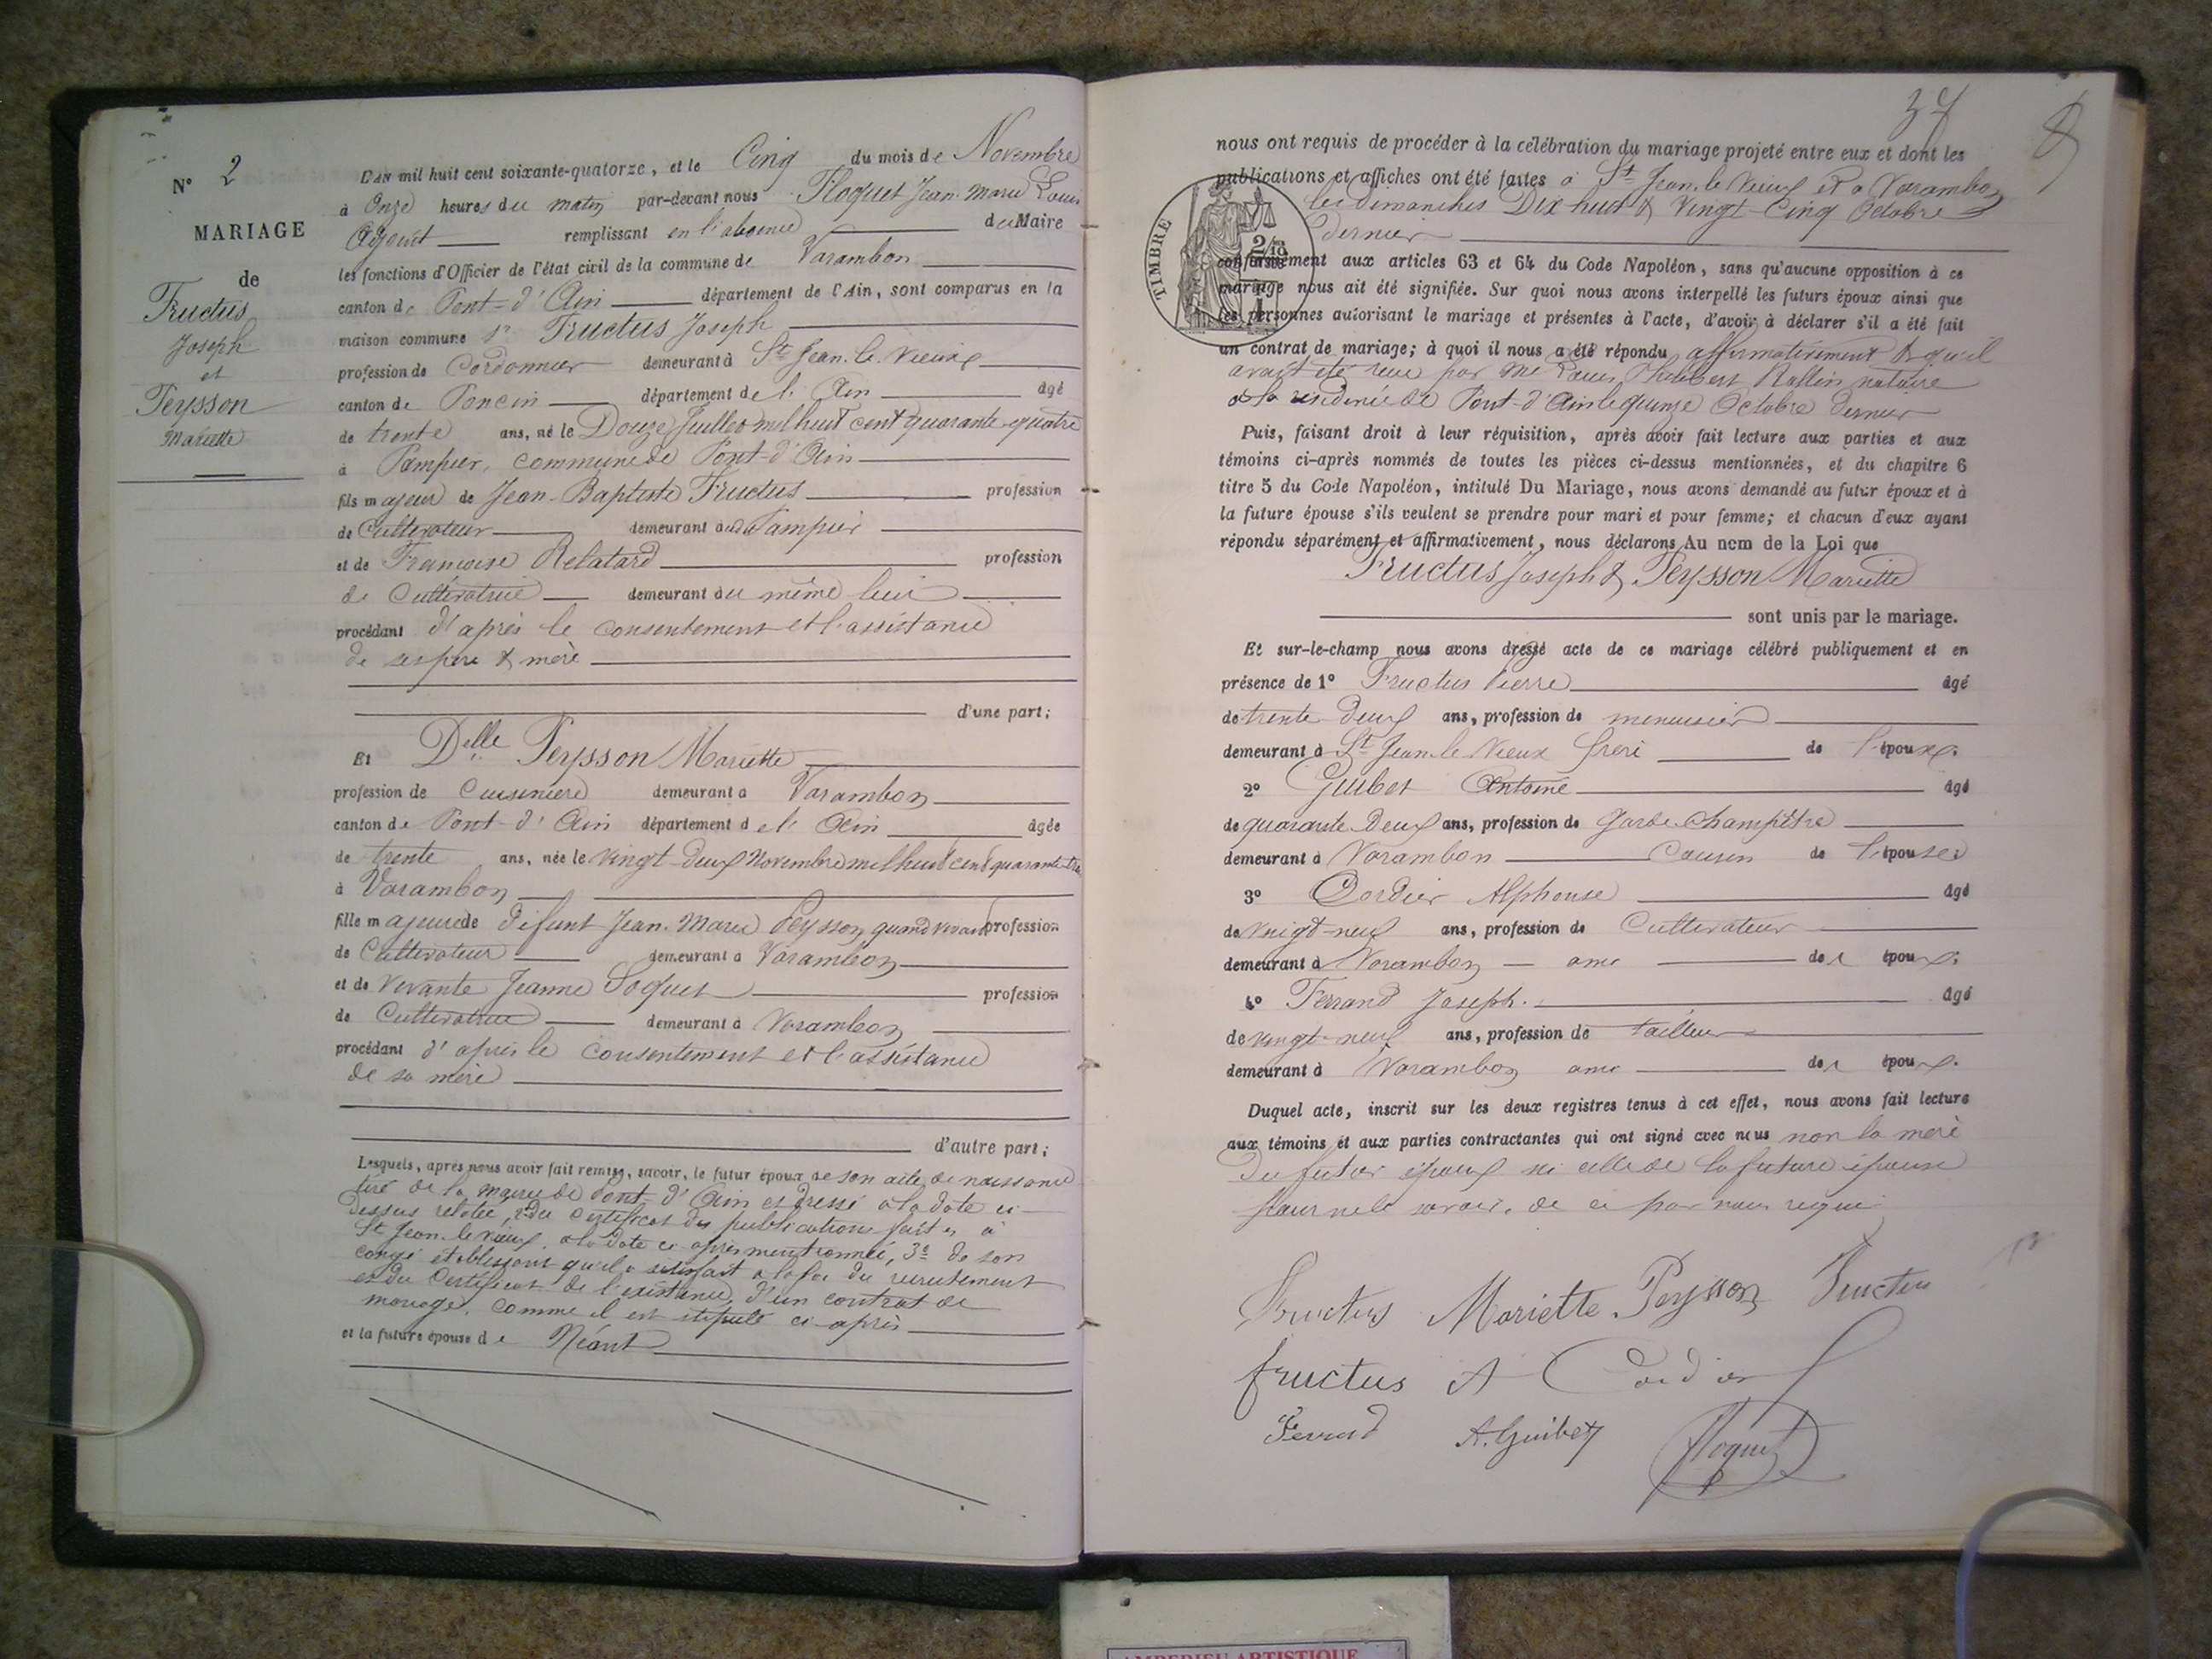 N° 2
MARIAGE
de
Fructus
Joseph
et
Peysson
Mariette
L'an mil huit cent soixante-quatorze, et le Cinq du mois de Novembre
à Onze heures du matin par-devant nous Floquet Jean-Marie Louis
Adjoint remplissant en l'absence du Maire
les fonctions d'Officier de l'état civil de la commune de Varambon
canton de Pont-d'Ain département de l'Ain, sont comparus en la
maison commune Sr Fructus Joseph
profession de Cordonnier demeurant à St Jean-le-Vieux
canton de Poncin département de l'Ain âgé
de trente ans, né le Douze Juillet mil huit cent quarante-quatre
à Pampier, commune de Pont-d'Ain
fils majeur de Jean-Baptiste Fructus profession
de Cultivateur demeurant audit Pampier
et de Françoise Relatard profession
de Cultivatrice demeurant au même lieu
procédant d'après le consentement et l'assistance
de ses père & mère
d'une part;
Et Delle Peysson Mariette
profession de Cuisinière demeurant à Varambon
canton de Pont-d'Ain département de l'Ain âgée
de trente ans, née le vingt-deux Novembre mil huit cent quarante-trois
à Varambon
fille majeure de défunt Jean-Marie Peysson quand vivant profession
de Cultivateur demeurant à Varambon
et de Vivante Jeanne Soquet profession
de Cultivatrice demeurant à Varambon
procédant d'après le consentement et l'assistance
de sa mère
d'autre part;
Lesquels, après nous avoir fait remise, savoir, le futur époux de son acte de naissance
tiré de la mairie de Pont-d'Ain et dressé à la date ci-
dessus relatée, 2° du Certificat des publications faites à
St Jean-le-Vieux, à la date ci-après mentionnée, 3° de son
congé établissant qu'il a satisfait à la loi du recrutement
et du Certificat de l'existence d'un contrat de
mariage, comme il est stipulé ci-après
et la future épouse de Néant
37
8
nous ont requis de procéder à la célébration du mariage projeté entre eux et dont les
publications et affiches ont été faites à St Jean-le-Vieux et à Varambon
les dimanches Dix huit & Vingt-Cinq Octobre
dernier
TIMBRE
conformément aux articles 63 et 64 du Code Napoléon, sans qu'aucune opposition à ce
mariage nous ait été signifiée. Sur quoi nous avons interpellé les futurs époux ainsi que
les personnes autorisant le mariage et présentes à l'acte, d'avoir à déclarer s'il a été fait
un contrat de mariage; à quoi il nous a été répondu affirmativement & qu'il
avait été reçu par Me Louis Philibert Rallin notaire
à la résidence de Pont-d'Ain le quinze Octobre dernier
Puis, faisant droit à leur réquisition, après avoir fait lecture aux parties et aux
témoins ci-après nommés de toutes les pièces ci-dessus mentionnées, et du chapitre 6
titre 5 du Code Napoléon, intitulé Du Mariage, nous avons demandé au futur époux et à
la future épouse s'ils veulent se prendre pour mari et pour femme; et chacun d'eux ayant
répondu séparément et affirmativement, nous déclarons Au nom de la Loi que
Fructus Joseph & Peysson Mariette
sont unis par le mariage.
Et sur-le-champ nous avons dressé acte de ce mariage célébré publiquement et en
présence de 1° Fructus Pierre âgé
de trente-deux ans, profession de menuisier
demeurant à St Jean-le-Vieux frère de l'époux.
2° Guibet Antoine âgé
de quarante-Deux ans, profession de Garde-Champêtre
demeurant à Varambon Cousin de l'épouse
3° Cordier Alphonse âgé
de vingt-neuf ans, profession de Cultivateur
demeurant à Varambon ami des époux.
4° Ferrand Joseph. âgé
de vingt-neuf ans, profession de tailleur
demeurant à Varambon ami des époux.
Duquel acte, inscrit sur les deux registres tenus à cet effet, nous avons fait lecture
aux témoins et aux parties contractantes qui ont signé avec nous non la mère
du futur époux ni celle de la future épouse
pour ne le savoir, de ce par nous requis
Fructus Mariette Peysson Fructus
fructus A Cordier
Ferrand A. Guibet Floquet
AMBERIEU ARTISTIQUE